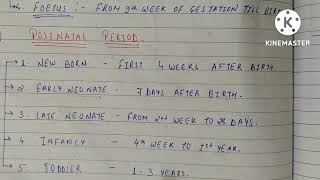 4. FOETUS :- FROM 9th WEEK OF GESTATION TILL
POSTNATAL PERIOD.
1. NEW BORN - FIRST 4 WEEKS AFTER BIRTH.
2 EARLY NEONATE - 7 DAYS AFTER BIRTH.
3. LATE NEONATE - FROM 2nd WEEK TO 28 DAYS.
4 INFANCY - 4th WEEK TO 1st YEAR.
5 TODDLER - 1-3 YEARS.
KINEMASTER